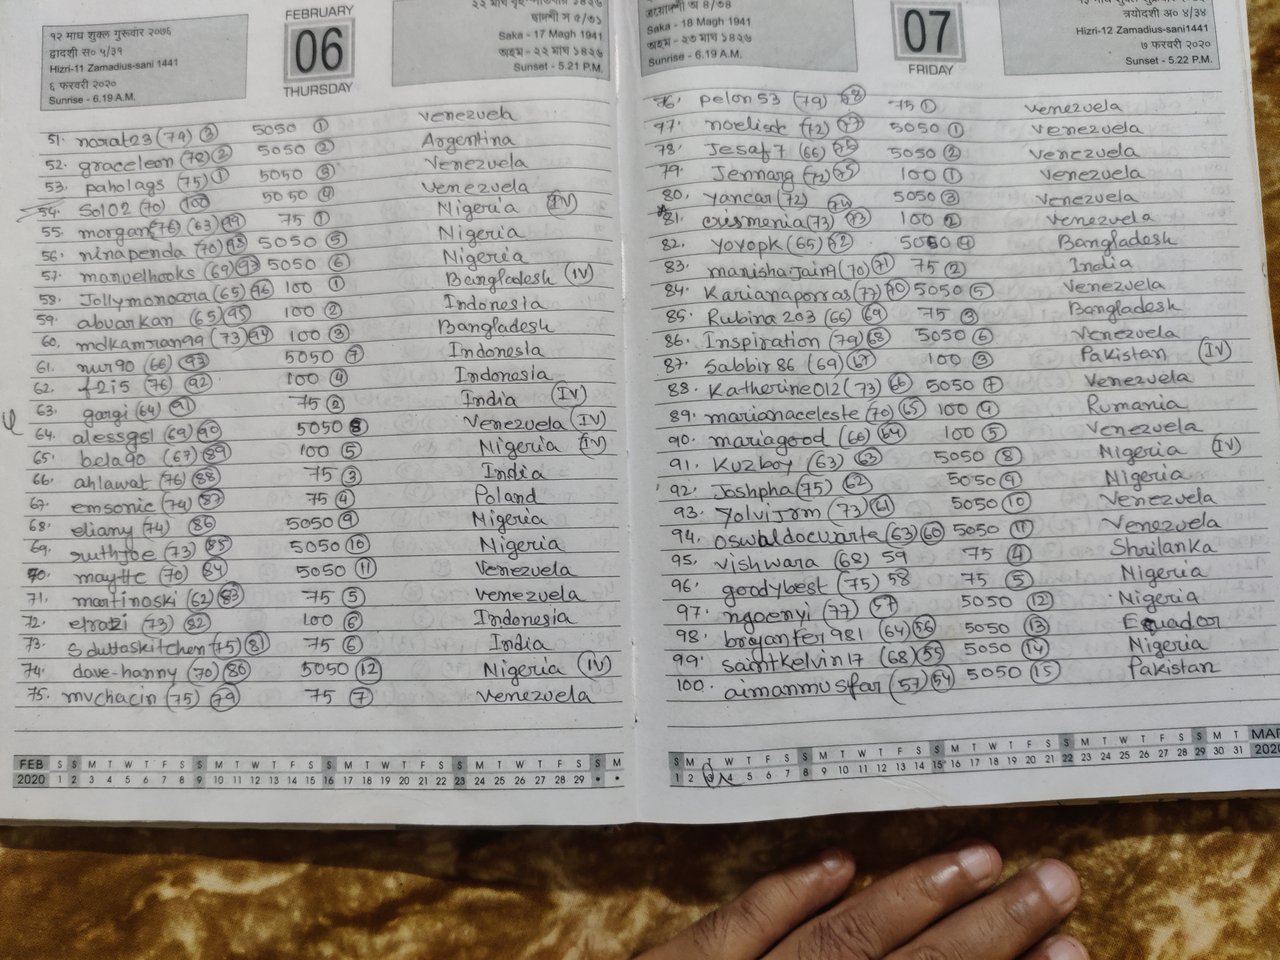 १२ माघ शुक्ल गुरूवार २०७६
द्वादशी स० ५/३१
Hizri-11 Zamadius-sani 1441
६ फरवरी २०२०
Sunrise - 6.19 A.M.
FEBRUARY
06
THURSDAY
Saka - 17 Magh 1941
Sunset - 5.21 P.M.
venezuela
51. norat23 (74) 3 5050 1 Argentina
52. graceleon (72) 2 5050 2 Venezuela
53. paholags (75) 1 5050 3 Venezuela
54. Sol02 (70) 100 5050 4 Nigeria (IV)
55. morgan(76) (63) 99 75 1 Nigeria
56. ninapenda (70) 98 5050 5 Nigeria
57. manuelhooks (69) 97 5050 6 Bangladesh (IV)
58. Jollymonoara (65) 96 100 1 Indonesia
59. abuarkan (65) 95 100 2 Bangladesh
60. mdkamran99 (73) 94 100 3 Indonesia
61. nur90 (66) 93 5050 7 Indonesia
62. f2i5 (76) 92 100 4 India (IV)
63. gargi (64) 91 75 2 Venezuela (IV)
64. alessgsl (69) 90 5050 8 Nigeria (IV)
65. bela90 (67) 89 100 5 India
66. ahlawat (76) 88 75 3 Poland
67. emsonic (74) 87 75 4 Nigeria
68. eliany (74) 86 5050 9 Nigeria
69. ruthjoe (73) 85 5050 10 Venezuela
70. mayttc (70) 84 5050 11 venezuela
71. martinoski (62) 83 75 5 Indonesia
72. efrozi (73) 82 100 6 India
73. sduttaskitchen (75) 81 75 6
74. dave-hanny (70) 80 5050 12 Nigeria (IV)
75. mvchacin (75) 79 75 7 Venezuela
FEB S S M T W T F S S M T W T F S S M T W T F S S M T W T F S S M
2020 1 2 3 4 5 6 7 8 9 10 11 12 13 14 15 16 17 18 19 20 21 22 23 24 25 26 27 28 29 • •
Saka - 18 Magh 1941
Sunrise - 6.19 A.M.
07
FRIDAY
त्रयोदशी अ० ४/३४
Hizri-12 Zamadius-sani1441
७ फरवरी २०२०
Sunset - 5.22 P.M.
76. pelon53 (79) 78 75 1 venezuela
77. noelisdc (72) 77 5050 1 Venezuela
78. Jesaf7 (66) 76 5050 2 Venezuela
79. Jennarg (72) 75 100 1 Venezuela
80. yancar (72) 74 5050 3 Venezuela
81. crismenia (73) 73 100 2 Venezuela
82. yoyopk (65) 72 5050 4 Bangladesh
83. manishajain9 (70) 71 75 2 India
84. Karianaporras (77) 70 5050 5 Venezuela
85. Rubina203 (66) 69 75 3 Bangladesh
86. Inspiration (79) 68 5050 6 Venezuela
87. Sabbir86 (69) 67 100 3 Pakistan (IV)
88. Katherine012 (73) 66 5050 7 Venezuela
89. marianaceleste (70) 65 100 4 Rumania
90. mariagood (66) 64 100 5 Venezuela
91. Kuzboy (63) 63 5050 8 Nigeria (IV)
92. Joshpha (75) 62 5050 9 Nigeria
93. yolvijrm (73) 61 5050 10 Venezuela
94. oswaldocuarta (63) 60 5050 11 Venezuela
95. vishwara (68) 59 75 4 Shrilanka
96. goodybest (75) 58 75 5 Nigeria
97. ngoenyi (77) 57 5050 12 Nigeria
98. brayanfer981 (64) 56 5050 13 Ecuador
99. saintkelvin17 (68) 55 5050 14 Nigeria
100. aimanmusfar (57) 54 5050 15 Pakistan
S M T W T F S S M T W T F S S M T W T F S S M T W T F S S M T MAR
1 2 3 4 5 6 7 8 9 10 11 12 13 14 15 16 17 18 19 20 21 22 23 24 25 26 27 28 29 30 31 2020